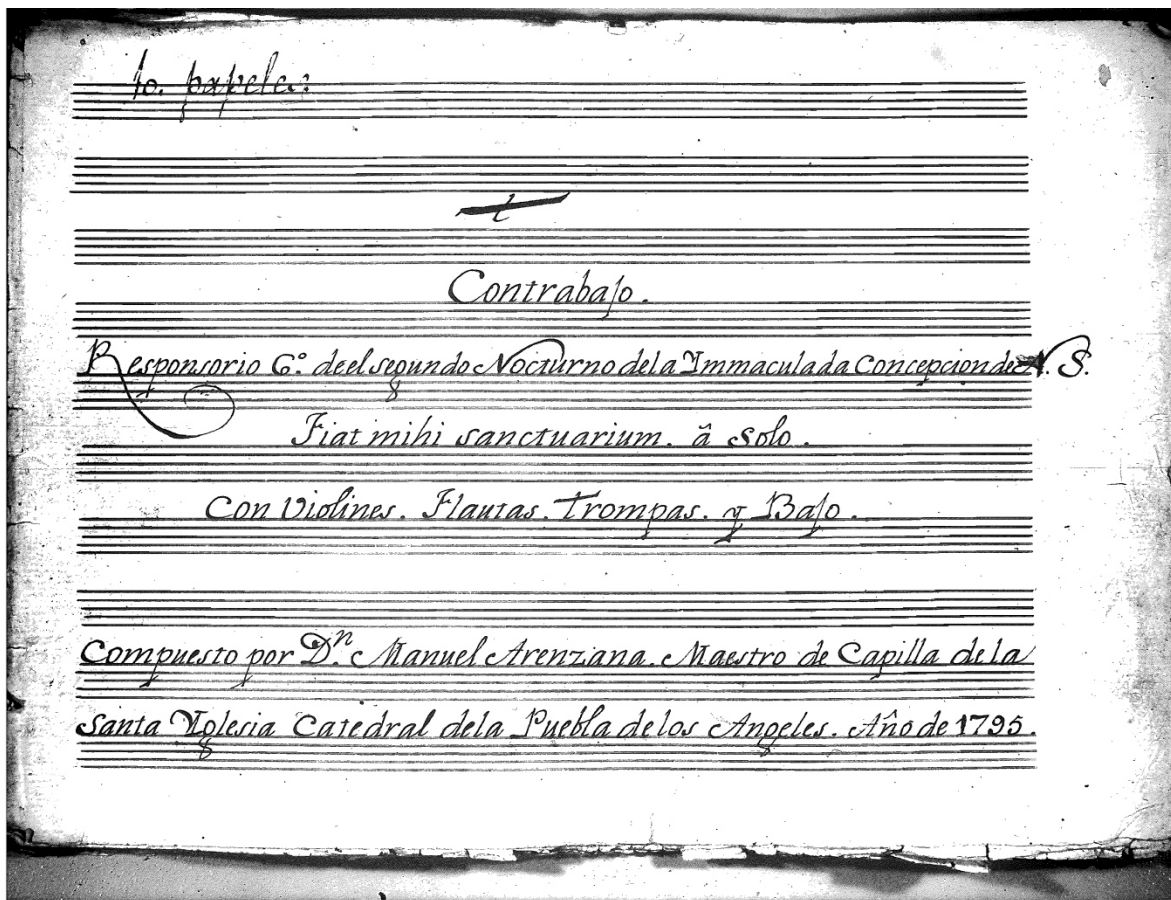 10. papeles
Contrabajo.
Responsorio 6º. de el segundo Nocturno de la Ymmaculada Concepcion de N. S.
Fiat mihi sanctuarium. â Solo.
Con Violines. Flautas. Trompas. y Bajo.
Compuesto por D.ⁿ Manuel Arenzana. Maestro de Capilla de la
Santa Yglesia Catedral de la Puebla de los Angeles. Año de 1795.